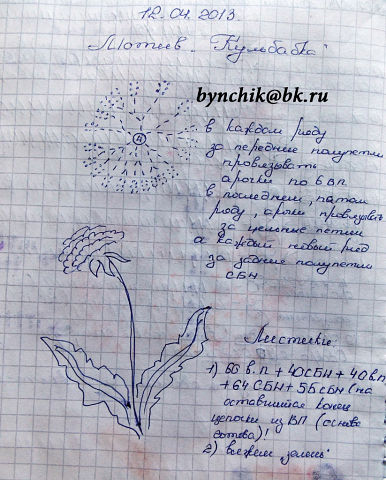 12.04.2013.
Мотив "Кульбабка"
bynchik@bk.ru
в каждом ряду
за передние полупетли
провязывать
арочки по 6 ВП
в последнем, пятом
ряду, арочки провязывать
за цельные петли
а каждый новый ряд
за задние полупетли
СБН
Листики:
1) 66 в.п + 40СБН + 40 в.п
+ 64 СБН + 56 СБН (на
оставшийся конец
цепочки из ВП (основа
готова)!
2) вяжем "зелень"